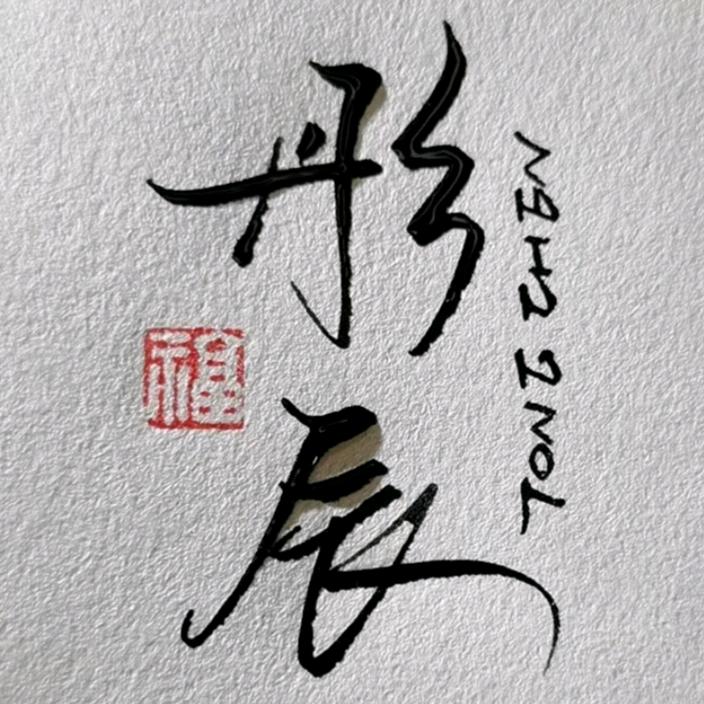 彤
辰
TONG CHEN
福